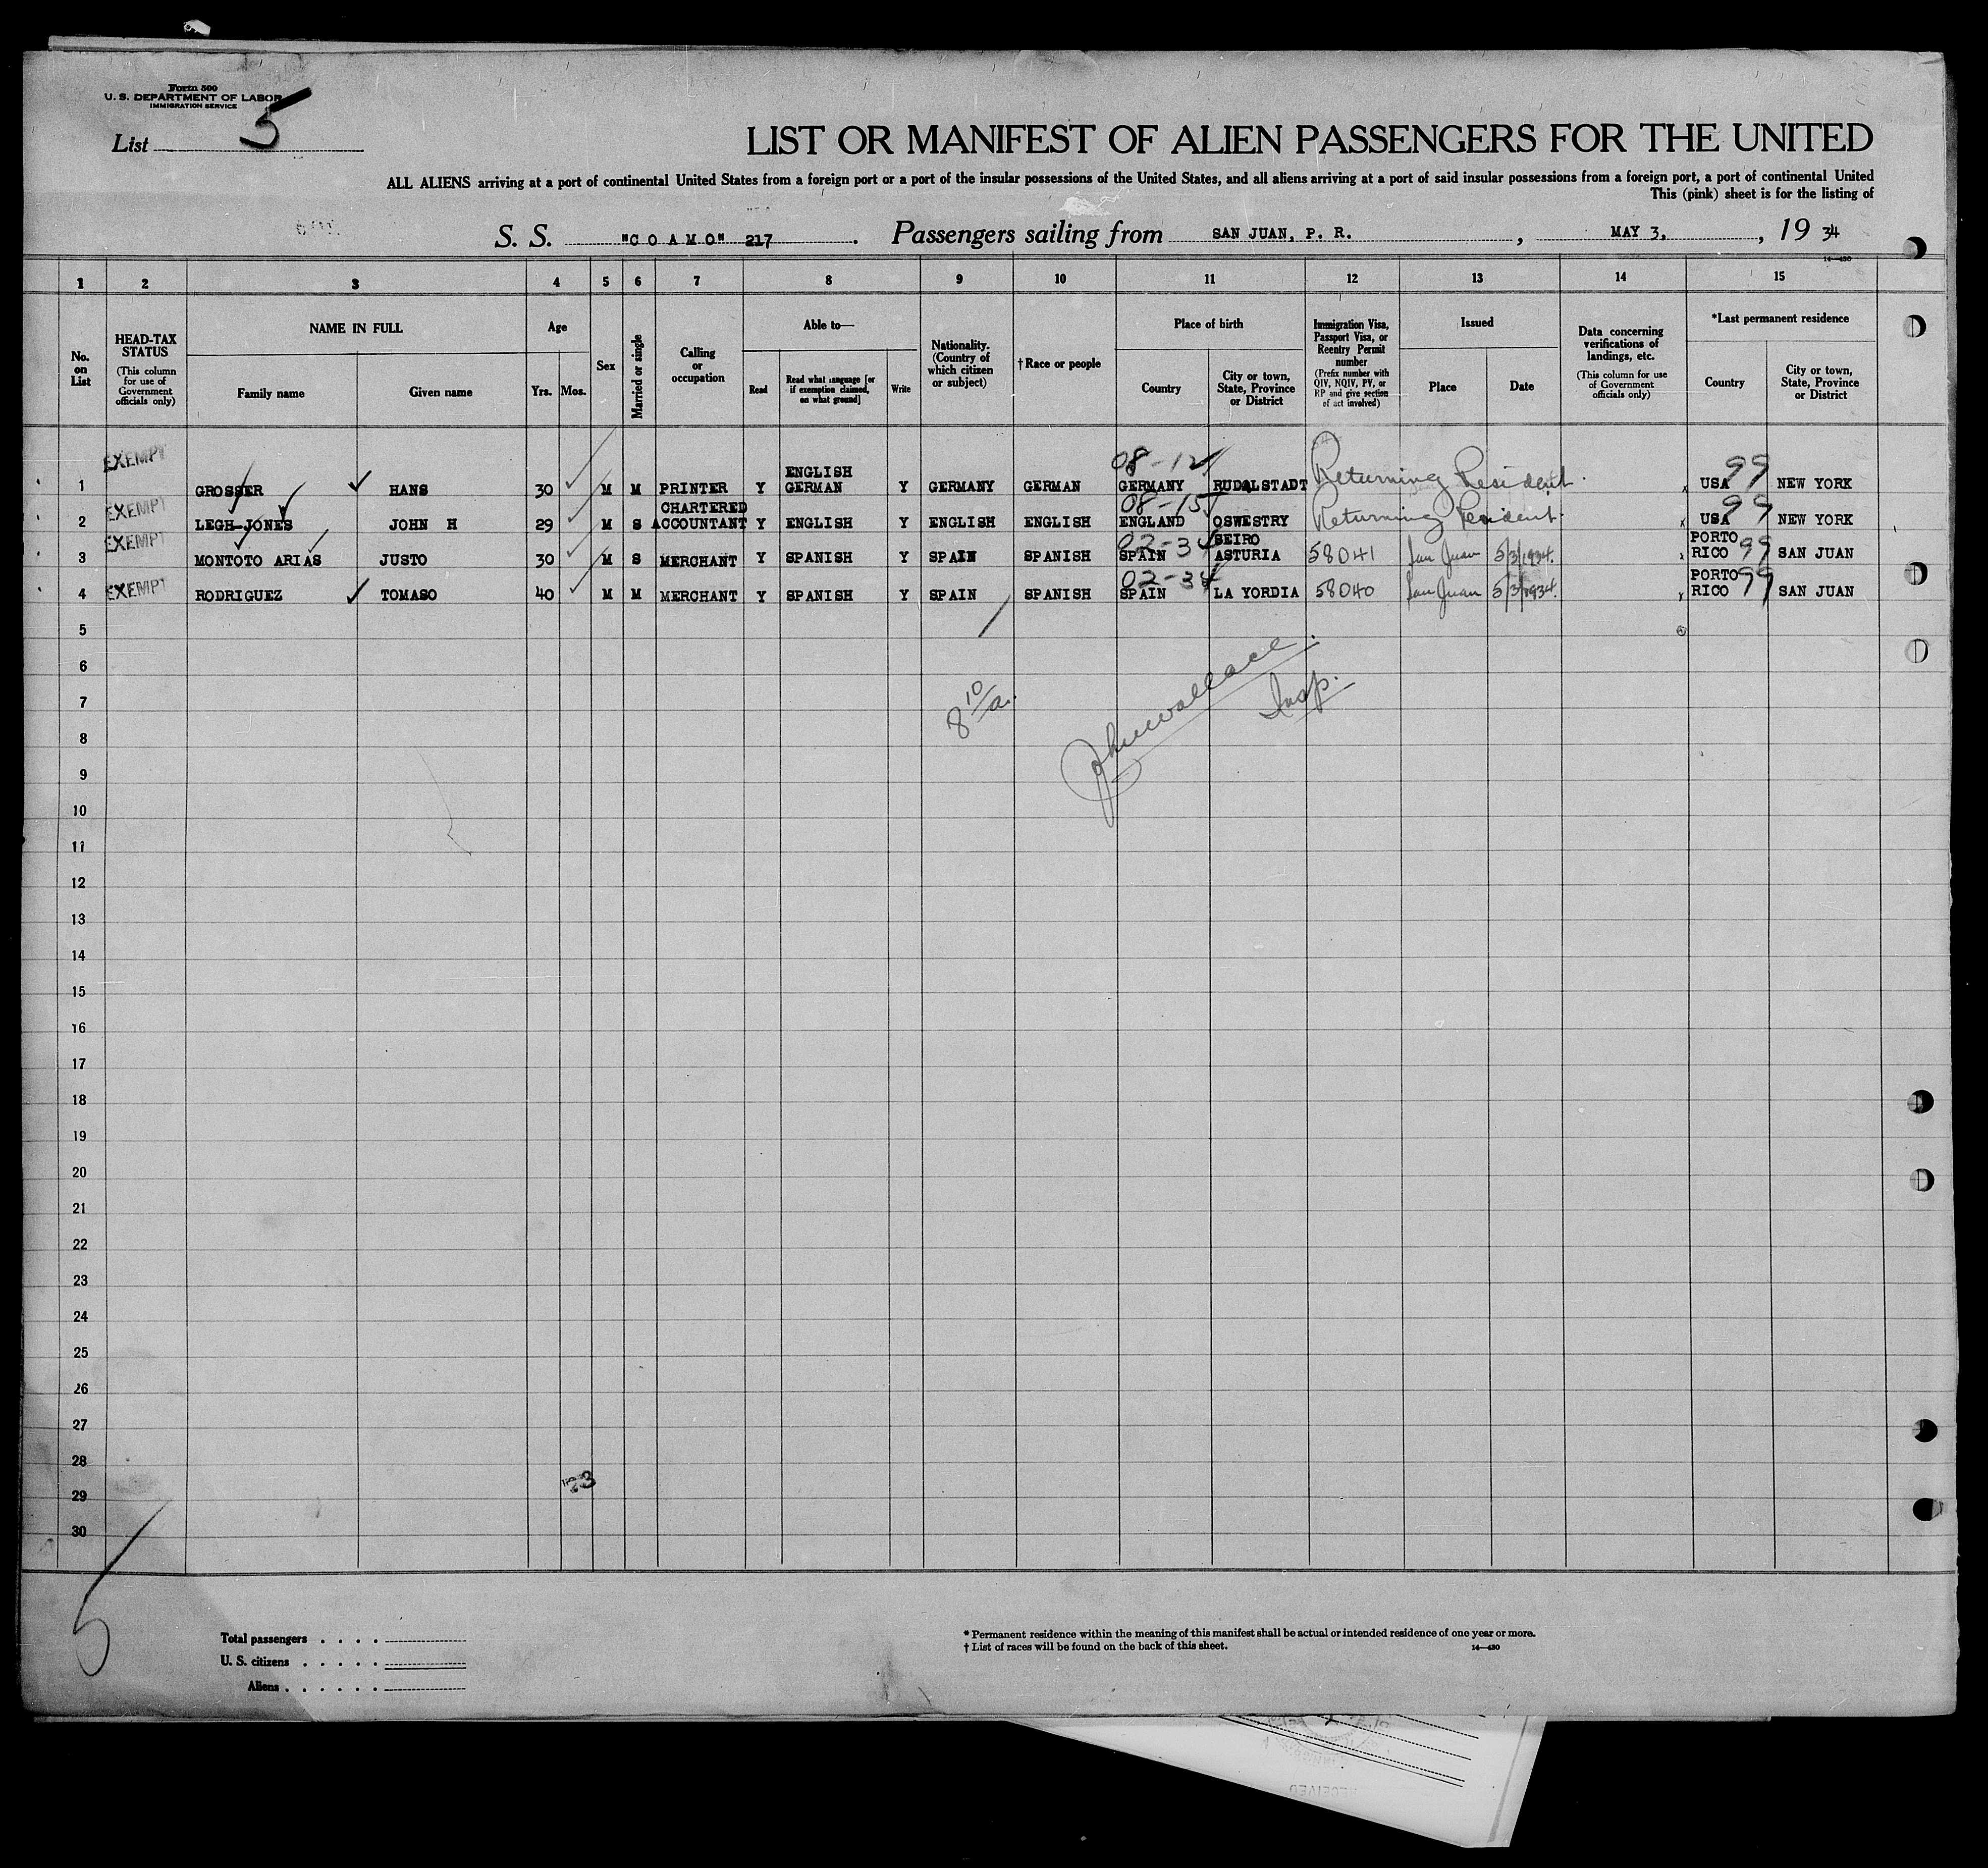 Form 500
U. S. DEPARTMENT OF LABOR
IMMIGRATION SERVICE
List 5
LIST OR MANIFEST OF ALIEN PASSENGERS FOR THE UNITED
ALL ALIENS arriving at a port of continental United States from a foreign port or a port of the insular possessions of the United States, and all aliens arriving at a port of said insular possessions from a foreign port, a port of continental United
This (pink) sheet is for the listing of
S. S. "C O A M O" 217. Passengers sailing from SAN JUAN, P. R., MAY 3, 1934
14—430
1 2 3 4 5 6 7 8 9 10 11 12 13 14 15
No. on List
HEAD-TAX STATUS (This column for use of Government officials only)
NAME IN FULL
Family name
Given name
Age
Yrs. Mos.
Sex
Married or single
Calling or occupation
Able to—
Read
Read what language [or if exemption claimed, on what ground]
Write
Nationality. (Country of which citizen or subject)
†Race or people
Place of birth
Country
City or town, State, Province or District
Immigration Visa, Passport Visa, or Reentry Permit number (Prefix number with QIV, NQIV, PV, or RP and give section of act involved)
Issued
Place
Date
Data concerning verifications of landings, etc. (This column for use of Government officials only)
*Last permanent residence
Country
City or town, State, Province or District
EXEMPT 08-12 99
1 GROSSER HANS 30 M M PRINTER Y ENGLISH GERMAN Y GERMANY GERMAN GERMANY RUDALSTADT Returning Resident. USA NEW YORK
EXEMPT 08-15 99
2 LEGH-JONES JOHN H 29 M S CHARTERED ACCOUNTANT Y ENGLISH Y ENGLISH ENGLISH ENGLAND OSWESTRY Returning Resident. USA NEW YORK
EXEMPT 02-34 99
3 MONTOTO ARIAS JUSTO 30 M S MERCHANT Y SPANISH Y SPAIN SPANISH SPAIN SEIRO ASTURIA 58041 San Juan 5/3/1934. PORTO RICO SAN JUAN
EXEMPT 02-34 99
4 RODRIGUEZ TOMASO 40 M M MERCHANT Y SPANISH Y SPAIN SPANISH SPAIN LA YORDIA 58040 San Juan 5/3/1934. PORTO RICO SAN JUAN
5
6
7
8 10/a.
John Wallace
Insp.
8
9
10
11
12
13
14
15
16
17
18
19
20
21
22
23
24
25
26
27
28
29
30
5
Total passengers
U. S. citizens
Aliens
* Permanent residence within the meaning of this manifest shall be actual or intended residence of one year or more.
† List of races will be found on the back of this sheet.
14—430
RECEIVED